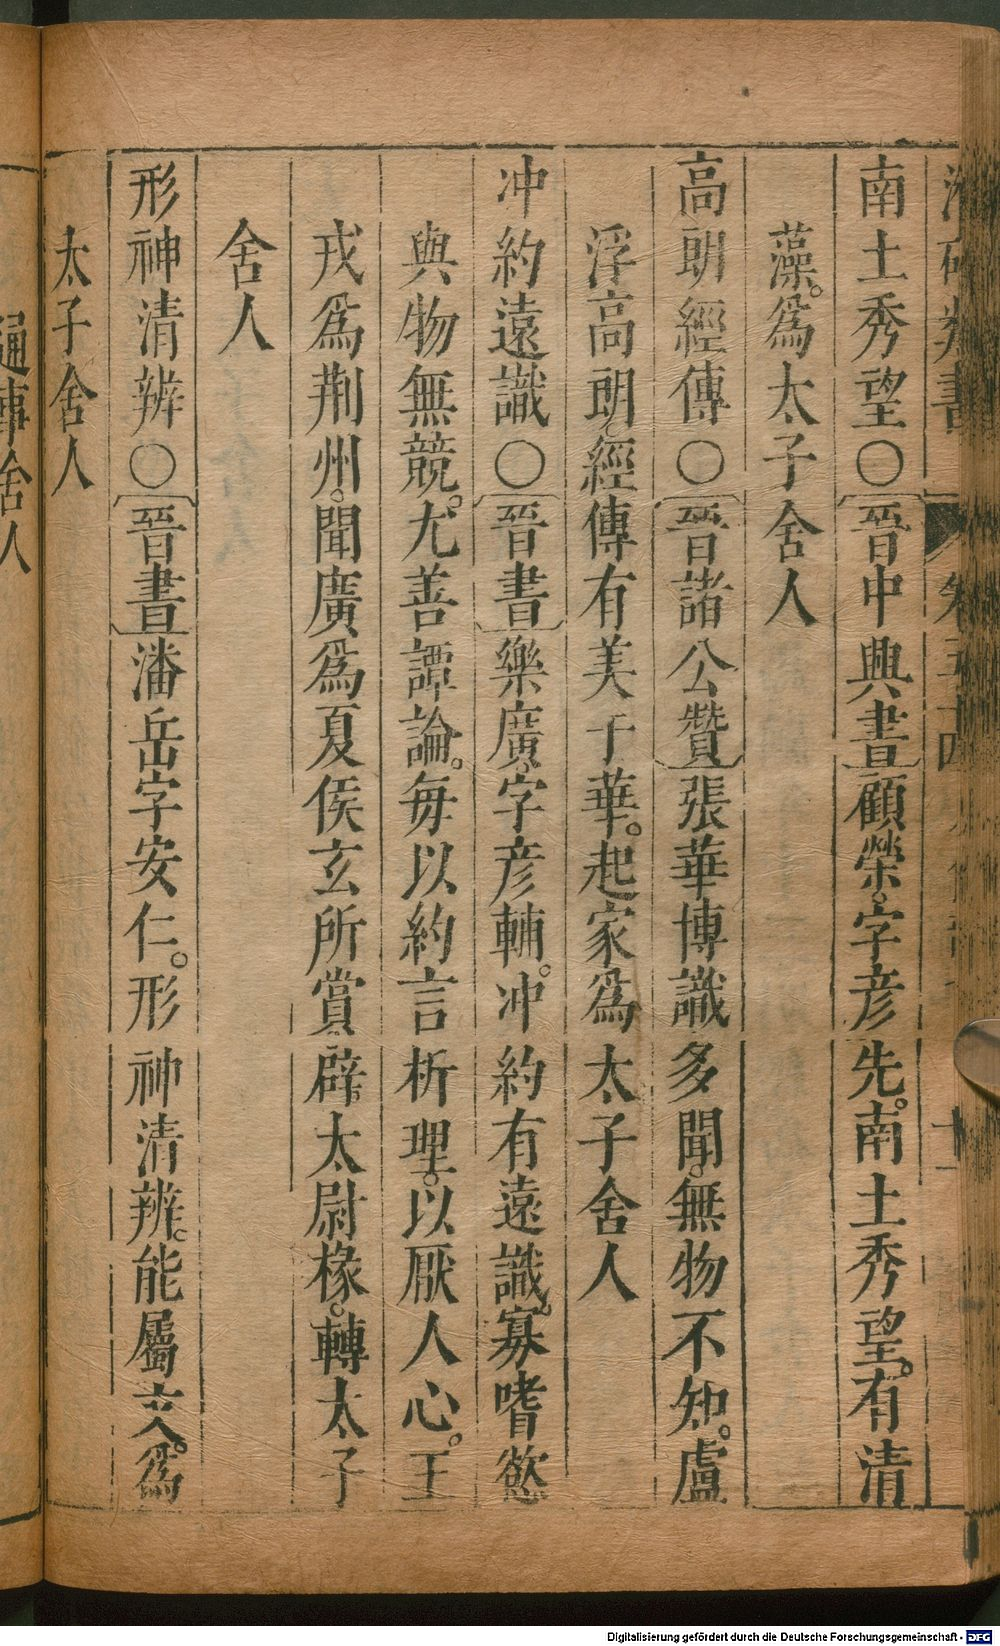 類書 卷五十四
南土秀望○晉中興書顧榮字彥先。南土秀望。有清
藻。為太子舍人
高朗經傳○晉諸公贊張華博識多聞。無物不知。盧
浮高朗。經傳有美于華。起家為太子舍人
冲約遠識○晉書樂廣。字彥輔。冲約有遠識。寡嗜慾
與物無競。尤善譚論。每以約言析理。以厭人心。王
戎為荆州。聞廣為夏侯玄所賞。辟太尉椽。轉太子
舍人
形神清辨○晉書潘岳字安仁。形神清辨。能屬文。為
太子舍人
通事舍人
Digitalisierung gefördert durch die Deutsche Forschungsgemeinschaft - DFG